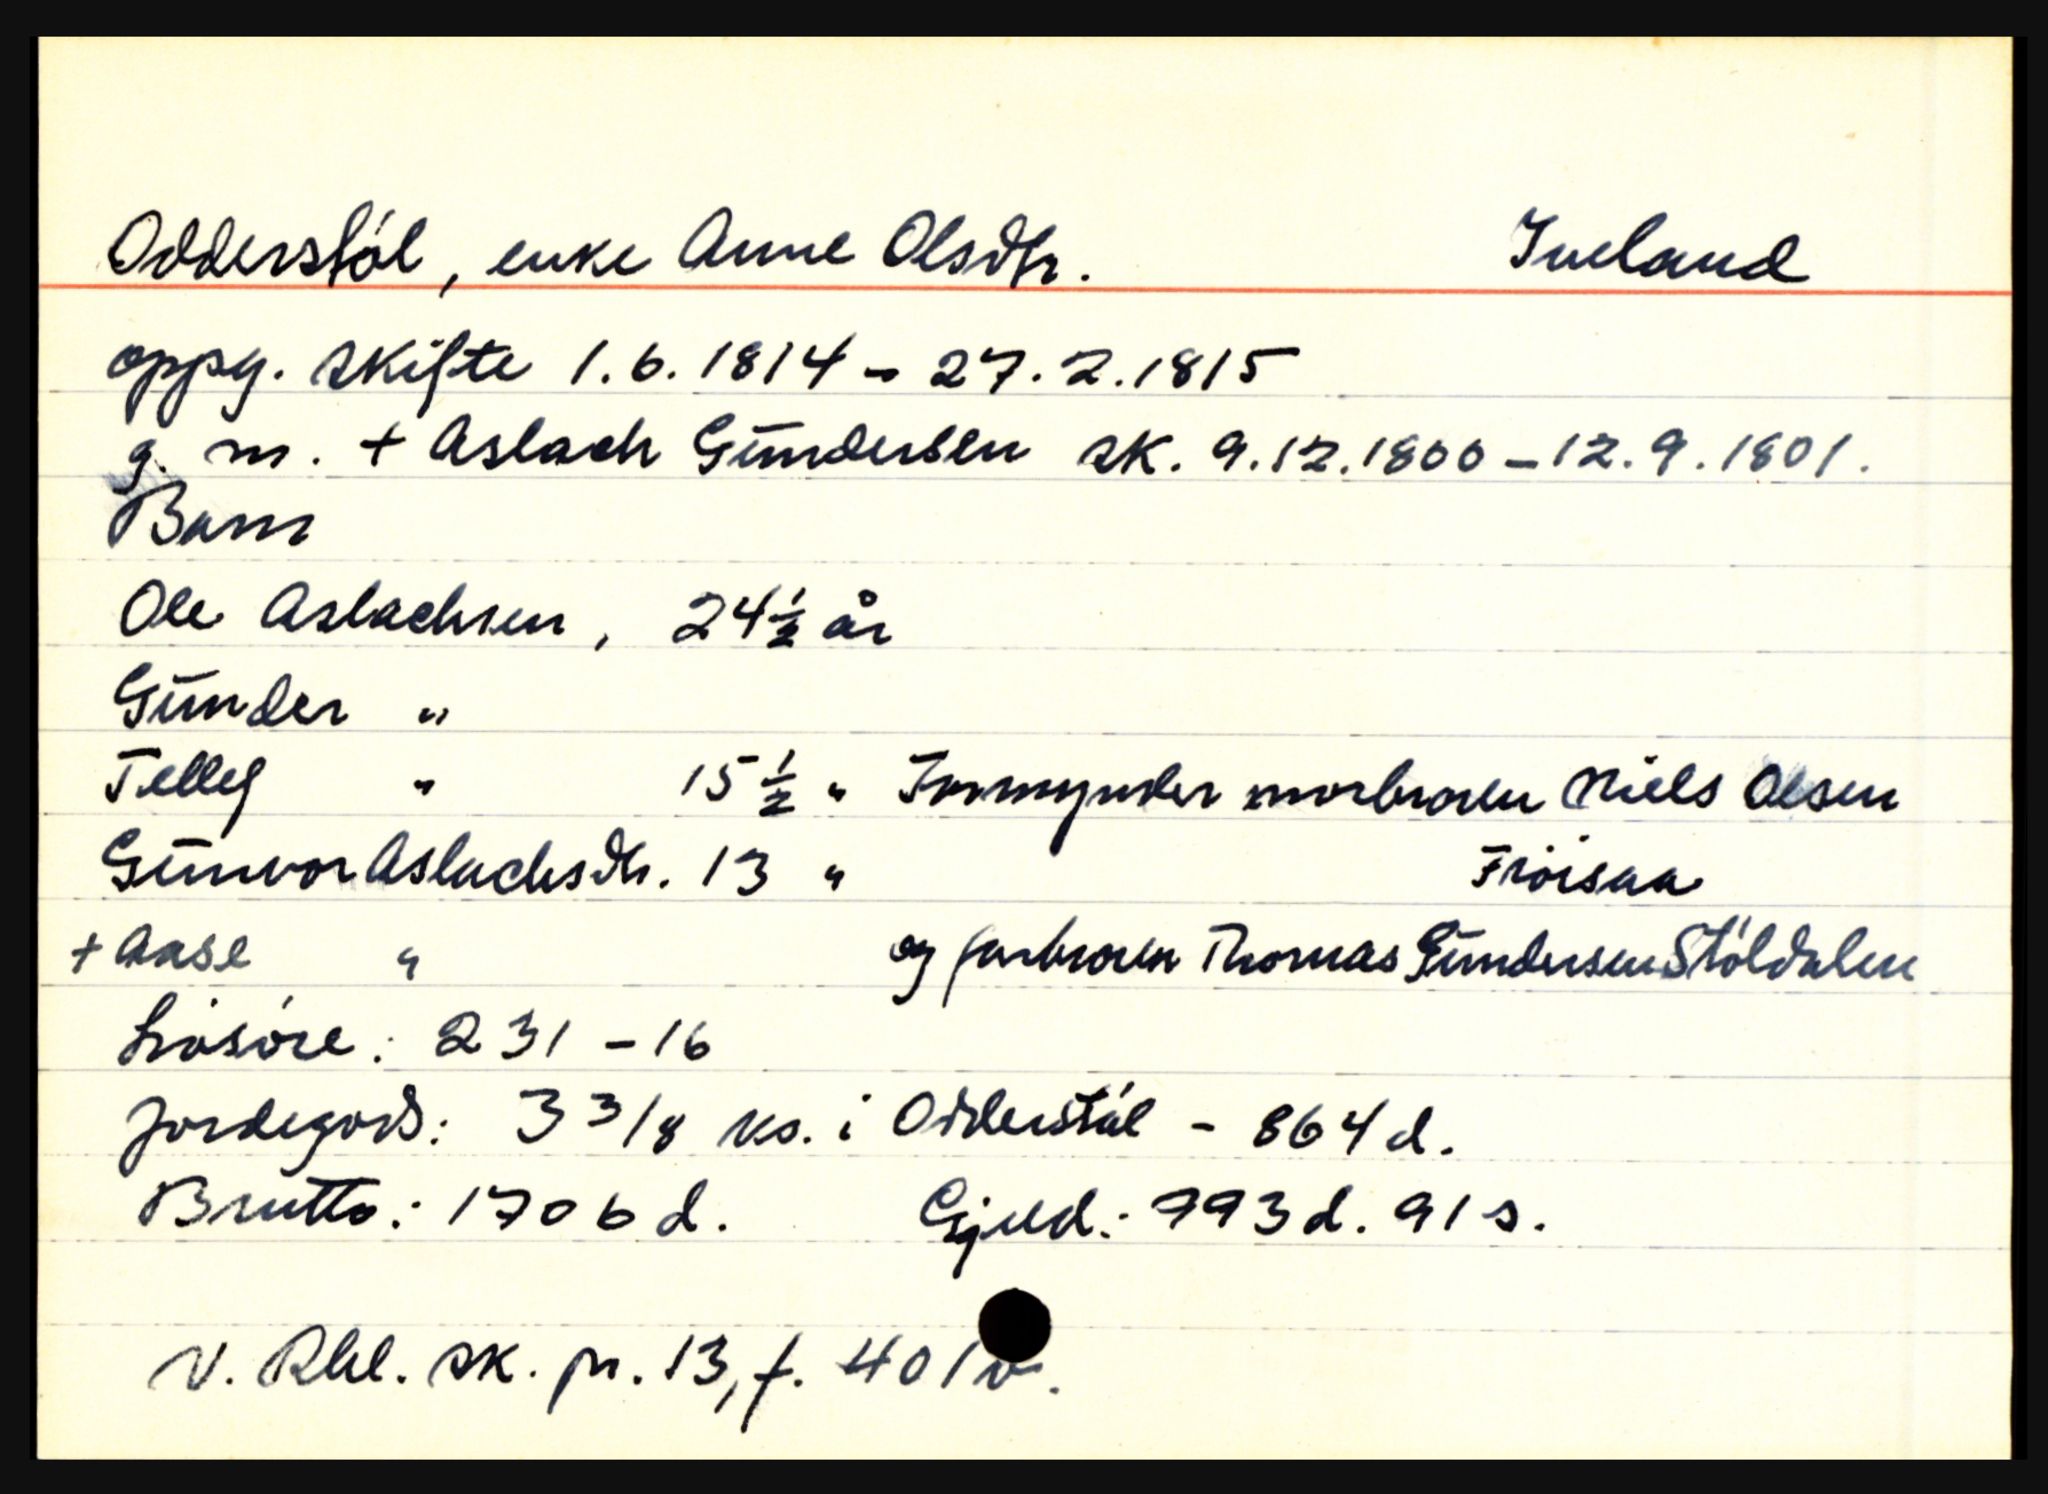 Odderstöl, enke Anne Olsdtr. Iveland
oppg. skifte 1.6.1814 - 27.2.1815
g. m. + Aslach Gundersen sk. 9.12.1800 - 12.9.1801.
Barn
Ole Aslachsen, 24 1/2 år
Gunder "
Tellef " 15 1/2 " Formynder morbroren Niels Olsen
Gunvor Aslachsdtr. 13 " Fröisaa
+ Aase " og farbroren Thomas Gundersen Stöldalen
Lösöre: 231 - 16
Jordegods: 3 3/8 ks. i Odderstöl - 864 d.
Brutto: 1706 d. Gjeld: 793 d. 91 s.
V. Rbl. sk. pr. 13, f. 401 v.